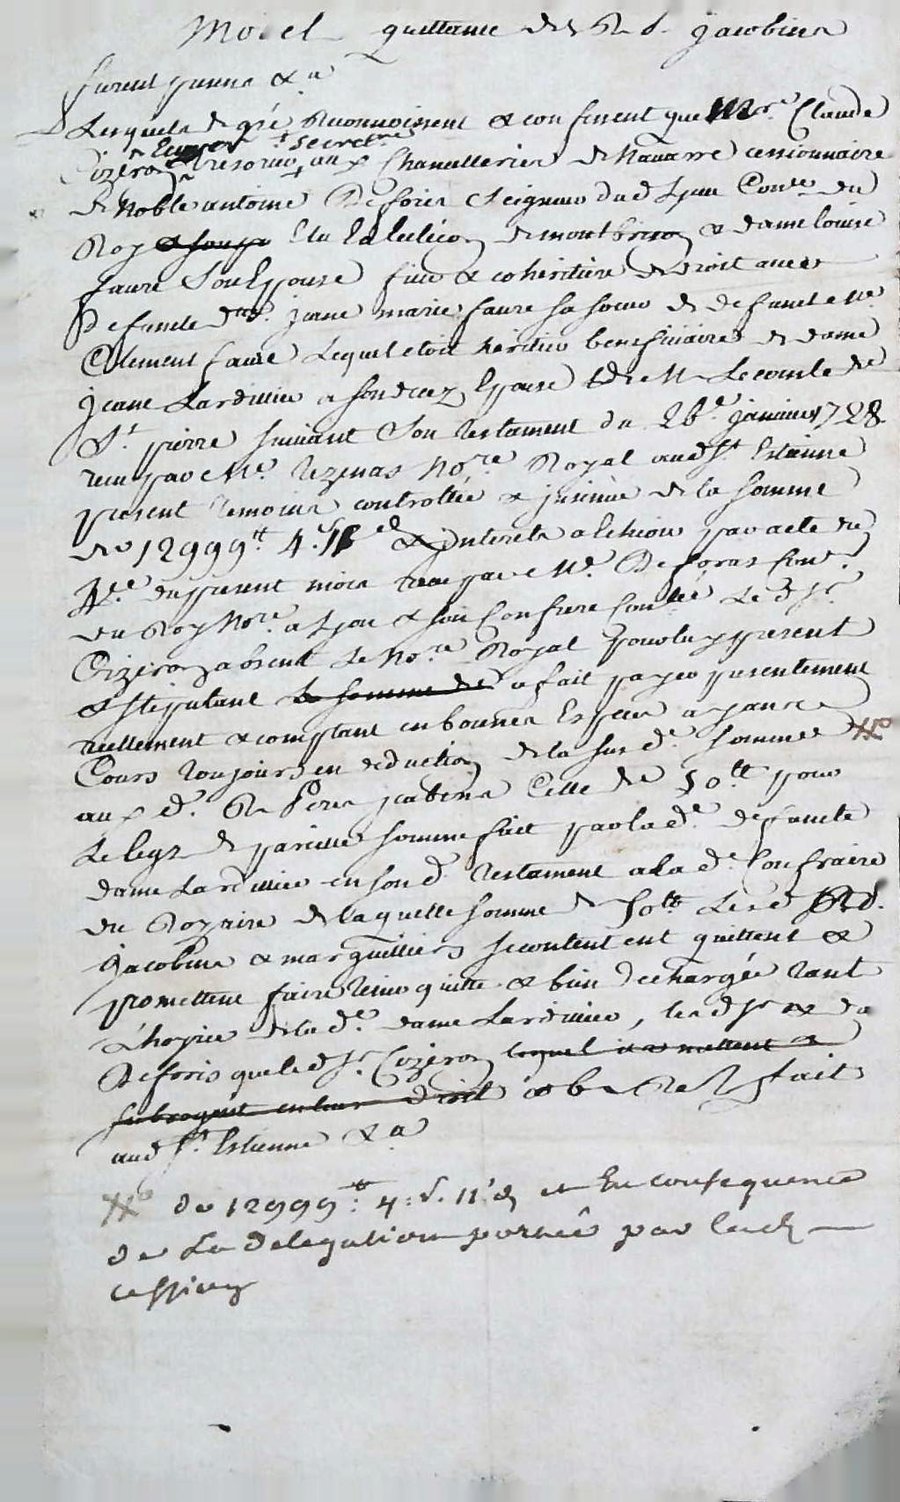 Model quittance des R d. jacobins
furent presens &a
Lesquels de gré Reconnoissent & confessent que Mre. Claude
Ecuyer secretre
Cizeron tresorier aux Chancelleries de Navarre cessionnaire
de Noble antoine Deforis Seigneur dud Conr du
Roy & Elu En Lelection de montbrison & dame louise
faure Son Epouse & coheritiere de droit avec
Defunte de. jeane marie faure sa soeur de defunt Me
Clement faure Lequel etoit héritier beneficiaire de dame
jeane Lardillier a son decez Epouse de M Lecomte de
St. pierre suivant Son testament du 26e. janvier 1728
receu par Me. tezenas Nore Royal aud St Estienne
present temoins controllée & jnsinuée de la somme
de 12999tt 4.s 11d & jnterets a Echeoir par acte du
du present mois receu par Me. Deforas Conr.
du Roy Nore. a Lyon & son Confrere Le d Sr.
Cizeron absent Le Nore. Royal pour luy present
& stipulant la somme de a fait payer presentement
reellement & comptant en bonnes Especes ayant
Cours toujours en deduction de la sus de. somme
aux d. R Peres jacobins Celle de 50tt pour
Le legs de pareille somme fait par la de. defunte
dame Lardillier en son d. testament a la de. Confrairie
du Rozaire de laquelle somme de 50tt Lesd R d.
jacobins & marguilliers se contentent quittent &
promettent faire tenir quitte & bien dechargée tant
L'hoirie de la de. dame Lardillier, les d Sr & de
Deforis que le d Sr. Cizeron lequel mettent &
subrogent en leur droit fait
aud St. Estienne &a
de 12999tt. 4.s. 11d et En consequence
de La delegation portée par lad
cession